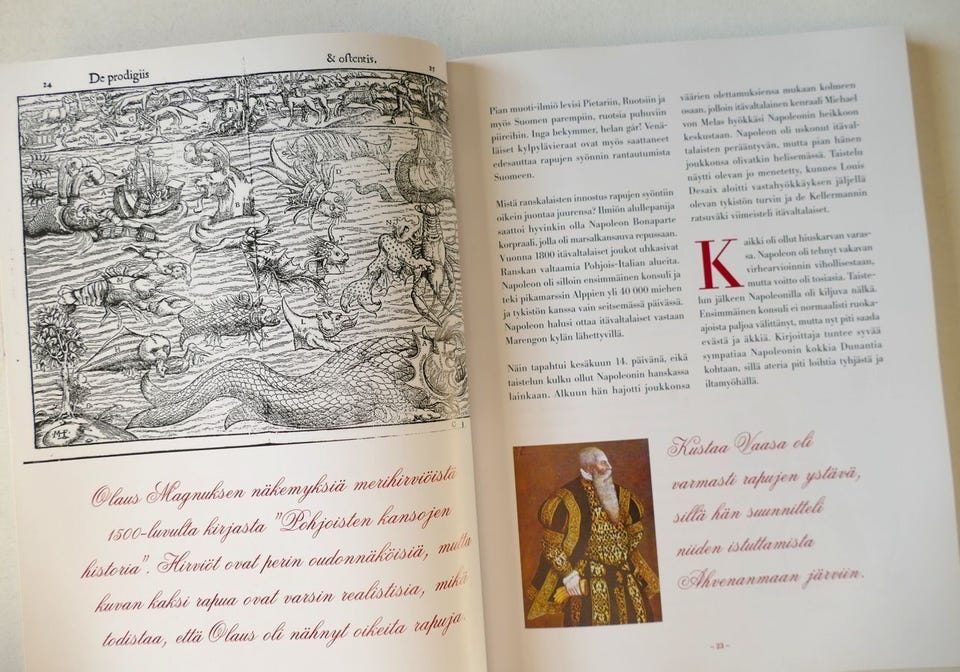 24
De prodigiis
& ostentis.
25
MF
Olaus Magnuksen näkemyksiä merihirviöistä
1500-luvulta kirjasta "Pohjoisten kansojen
historia". Hirviöt ovat perin oudonnäköisiä, mutta
kuvan kaksi rapua ovat varsin realistisia, mikä
todistaa, että Olaus oli nähnyt oikeita rapuja.
Pian muoti-ilmiö levisi Pietariin, Ruotsiin ja
myös Suomen parempiin, ruotsia puhuviin
piireihin. Inga bekymmer, helan går! Venä-
läiset kylpylävieraat ovat myös saattaneet
edesauttaa rapujen syönnin rantautumista
Suomeen.
Mistä ranskalaisten innostus rapujen syöntiin
oikein juontaa juurensa? Ilmiön alullepanija
saattoi hyvinkin olla Napoleon Bonaparte
korpraali, jolla oli marsalkansauva repussaan.
Vuonna 1800 itävaltalaiset joukot uhkasivat
Ranskan valtaamia Pohjois-Italian alueita.
Napoleon oli silloin ensimmäinen konsuli ja
teki pikamarssin Alppien yli 40 000 miehen
ja tykistön kanssa vain seitsemässä päivässä.
Napoleon halusi ottaa itävaltalaiset vastaan
Marengon kylän lähettyvillä.
Näin tapahtui kesäkuun 14. päivänä, eikä
taistelun kulku ollut Napoleonin hanskassa
lainkaan. Alkuun hän hajotti joukkonsa
väärien olettamuksiensa mukaan kolmeen
osaan, jolloin itävaltalainen kenraali Michael
von Melas hyökkäsi Napoleonin heikkoon
keskustaan. Napoleon oli uskonut itäval-
talaisten perääntyvän, mutta pian hänen
joukkonsa olivatkin helisemässä. Taistelu
näytti olevan jo menetetty, kunnes Louis
Desaix aloitti vastahyökkäyksen jäljellä
olevan tykistön turvin ja de Kellermannin
ratsuväki viimeisteli itävaltalaiset.
Kaikki oli ollut hiuskarvan varas-
sa. Napoleon oli tehnyt vakavan
virhearvioinnin vihollisestaan,
mutta voitto oli tosiasia. Taiste-
lun jälkeen Napoleonilla oli kiljuva nälkä.
Ensimmäinen konsuli ei normaalisti ruoka-
ajoista paljoa välittänyt, mutta nyt piti saada
evästä ja äkkiä. Kirjoittaja tuntee syvää
sympatiaa Napoleonin kokkia Dunantia
kohtaan, sillä ateria piti loihtia tyhjästä ja
iltamyöhällä.
Kustaa Vaasa oli
varmasti rapujen ystävä,
sillä hän suunnitteli
niiden istuttamista
Ahvenanmaan järviin.
– 23 –